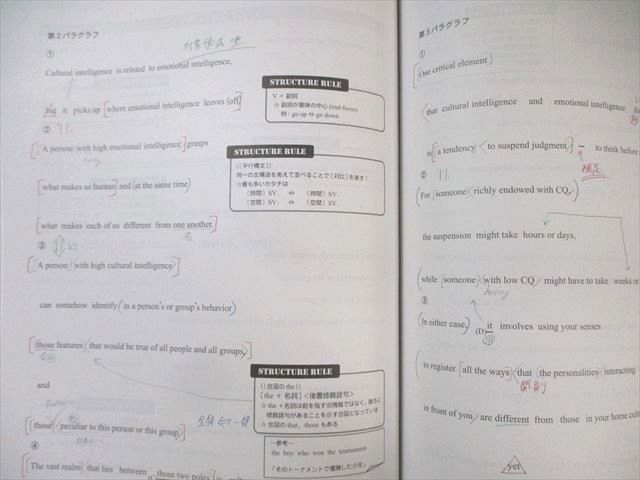 第2パラグラフ
①
Cultural intelligence is related to emotional intelligence,
but it picks up [where emotional intelligence leaves off].
②
[A person with high emotional intelligence] grasps
[what makes us human] and (at the same time)
[what makes each of us different from one another.]
③
[A person (with high cultural intelligence)]
can somehow identify (in a person's or group's behavior)
[those features (that would be true of all people and all groups,)]
and
[those (peculiar to this person or this group)]
④
[The vast realm (that lies between those two poles)] is cultu
STRUCTURE RULE
V + 副詞
☆ 副詞が意味の中心 (end-focus)
例:go up ⇔ go down
STRUCTURE RULE
((平行構文))
同一の文構造をあえて並べることで【対比】を表す!
☆最も多いカタチは
(時間) SV. ⇔ (時間) SV.
(空間) SV. ⇔ (空間) SV.
STRUCTURE RULE
((合図の the))
[the + 名詞] <後置修飾語句>
☆ the + 名詞は前を指す旧情報ではなく、後ろに
修飾語句があることを示す合図となっている
☆ 合図の that, those もある
~参考~
the boy who won the tournament
「そのトーナメントで優勝した少年」
第3パラグラフ
①
[One critical element]
(that cultural intelligence and emotional intelligence do
is [a tendency (to suspend judgment)] — to think before
②
(For [someone (richly endowed with CQ,)
the suspension might take hours or days,
(while [someone] (with low CQ) might have to take weeks or
③
(In either case,) (D) it involves using your senses
to register [all the ways (that [the personalities (interacting
関副
in front of you) are different from those in your home cult
yet